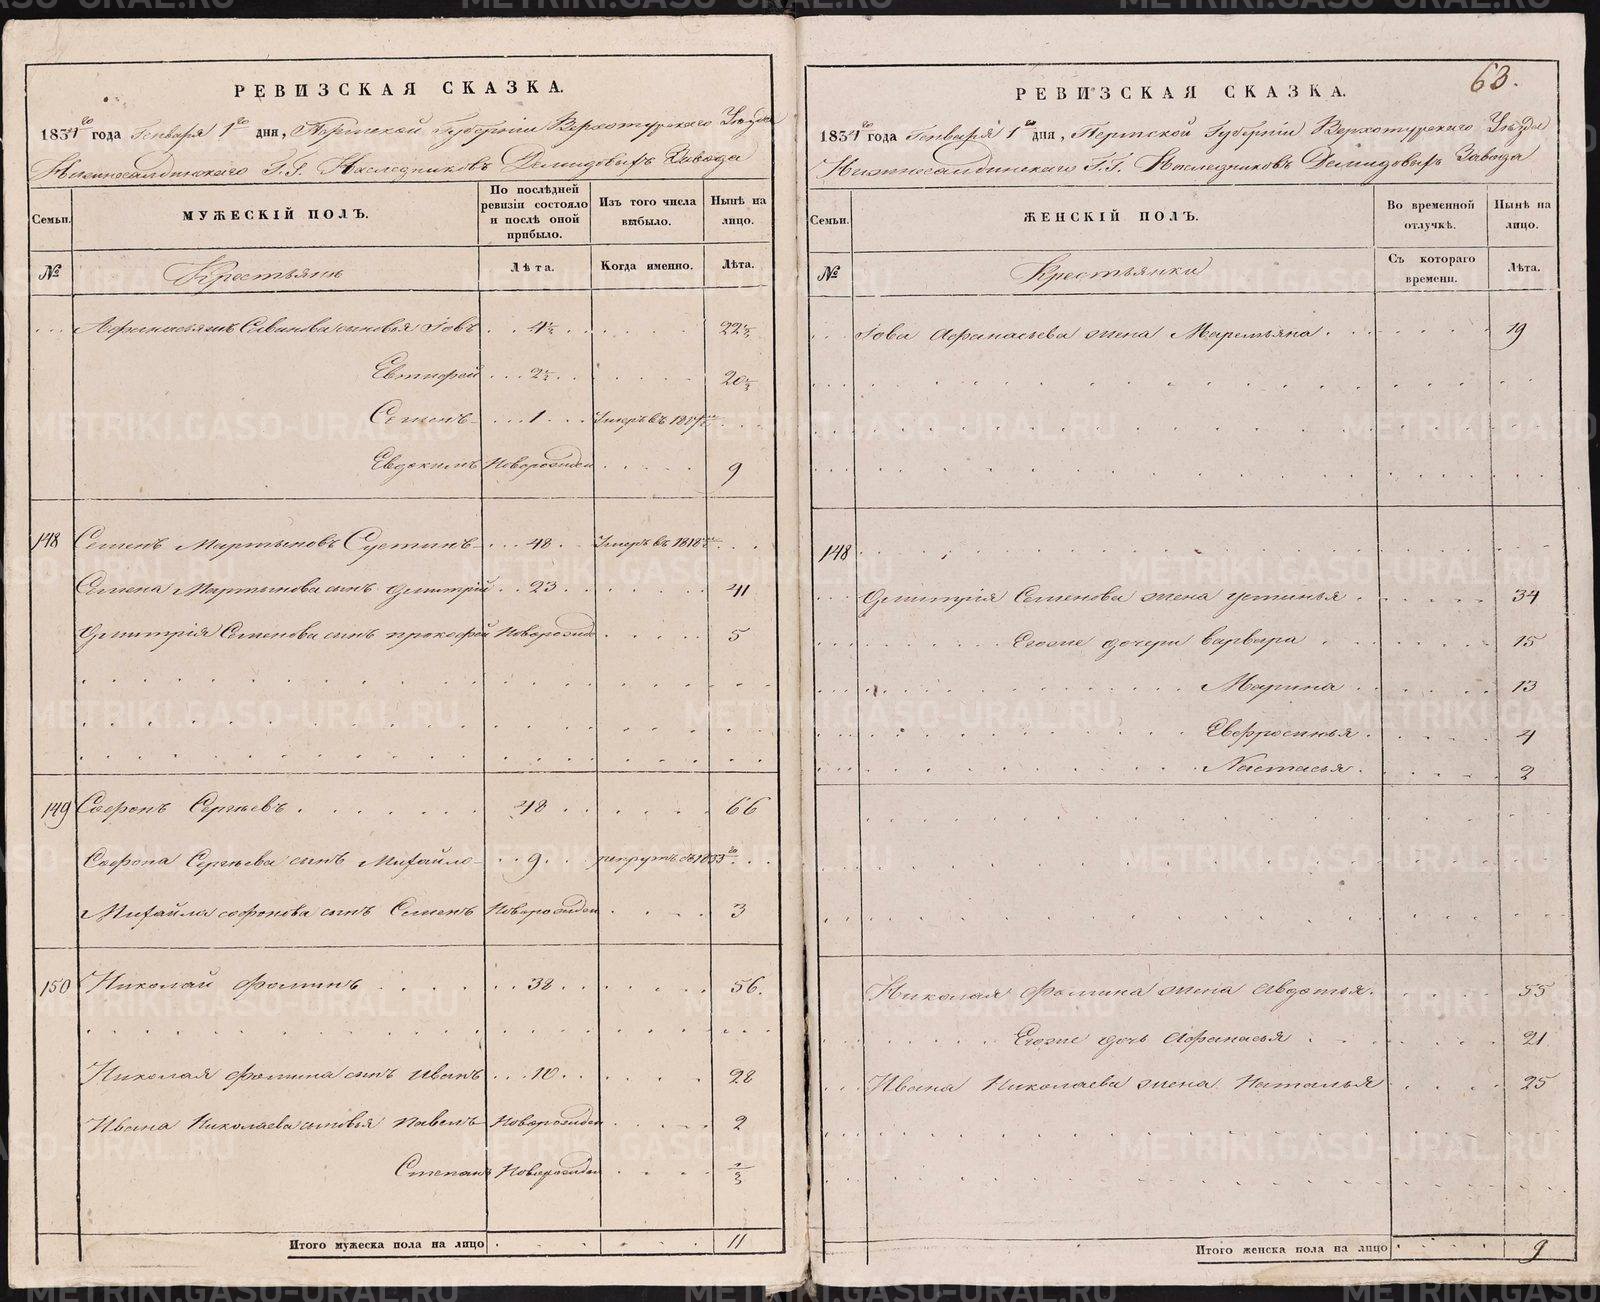 РЕВИЗСКАЯ СКАЗКА.
1834го года Генваря 1го дня, Пермской Губерніи Верхотурскаго Уѣзда
Нижнесалдинскаго Г.Г. Наслѣдниковъ Демидовыхъ Завода
Семьи. МУЖЕСКІЙ ПОЛЪ. По послѣдней ревизіи состояло и послѣ оной прибыло. Изъ того числа выбыло. Нынѣ на лицо.
№ Крестьянъ Лѣта. Когда именно. Лѣта.
Афанасья Савинова сыновья Іовъ 4½ 22½
Евтифей 2½ 20½
Семенъ 1 Умеръ въ
Евдокимъ Новорожден 9
148 Семенъ Мартыновъ Сустинъ 48 Умеръ въ 1818
Семена Мартынова сынъ Дмитрій 23 41
Дмитрія Семенова сынъ Прокофей Новорожде 5
149 Сафронъ Сергѣевъ 48 66
Сафрона Сергѣева сынъ Михайло 9 рекрутъ съ 1833го
Михайла Сафонова сынъ Семенъ Новорожден 3
150 Николай Фоминъ 38 56.
Николая Фомина сынъ Иванъ 10 28
Ивана Николаева сыновья Павелъ Новорожден 2
Степанъ Новорожден
Итого мужеска пола на лицо 11
63.
РЕВИЗСКАЯ СКАЗКА.
1834го года Генваря 1го дня, Пермской Губерніи Верхотурскаго Уѣзда
Нижнесалдинскаго Г.Г. Наслѣдниковъ Демидовыхъ Завода
Семьи. ЖЕНСКІЙ ПОЛЪ. Во временной отлучкѣ. Нынѣ на лицо.
№ Крестьянки Съ котораго времени. Лѣта.
Іова Афанасьева жена Маремьяна 19
148
Дмитрія Семенова жена Устинья 34
Егоже дочери Варвара 15
Марина 13
Евфросинья 4
Настасья 2
Николая Фомина жена Авдотья 55
Егоже дочь Афанасья 21
Ивана Николаева жена Наталья 25
Итого женска пола на лицо 9
METRIKI.GASO-URAL.RU